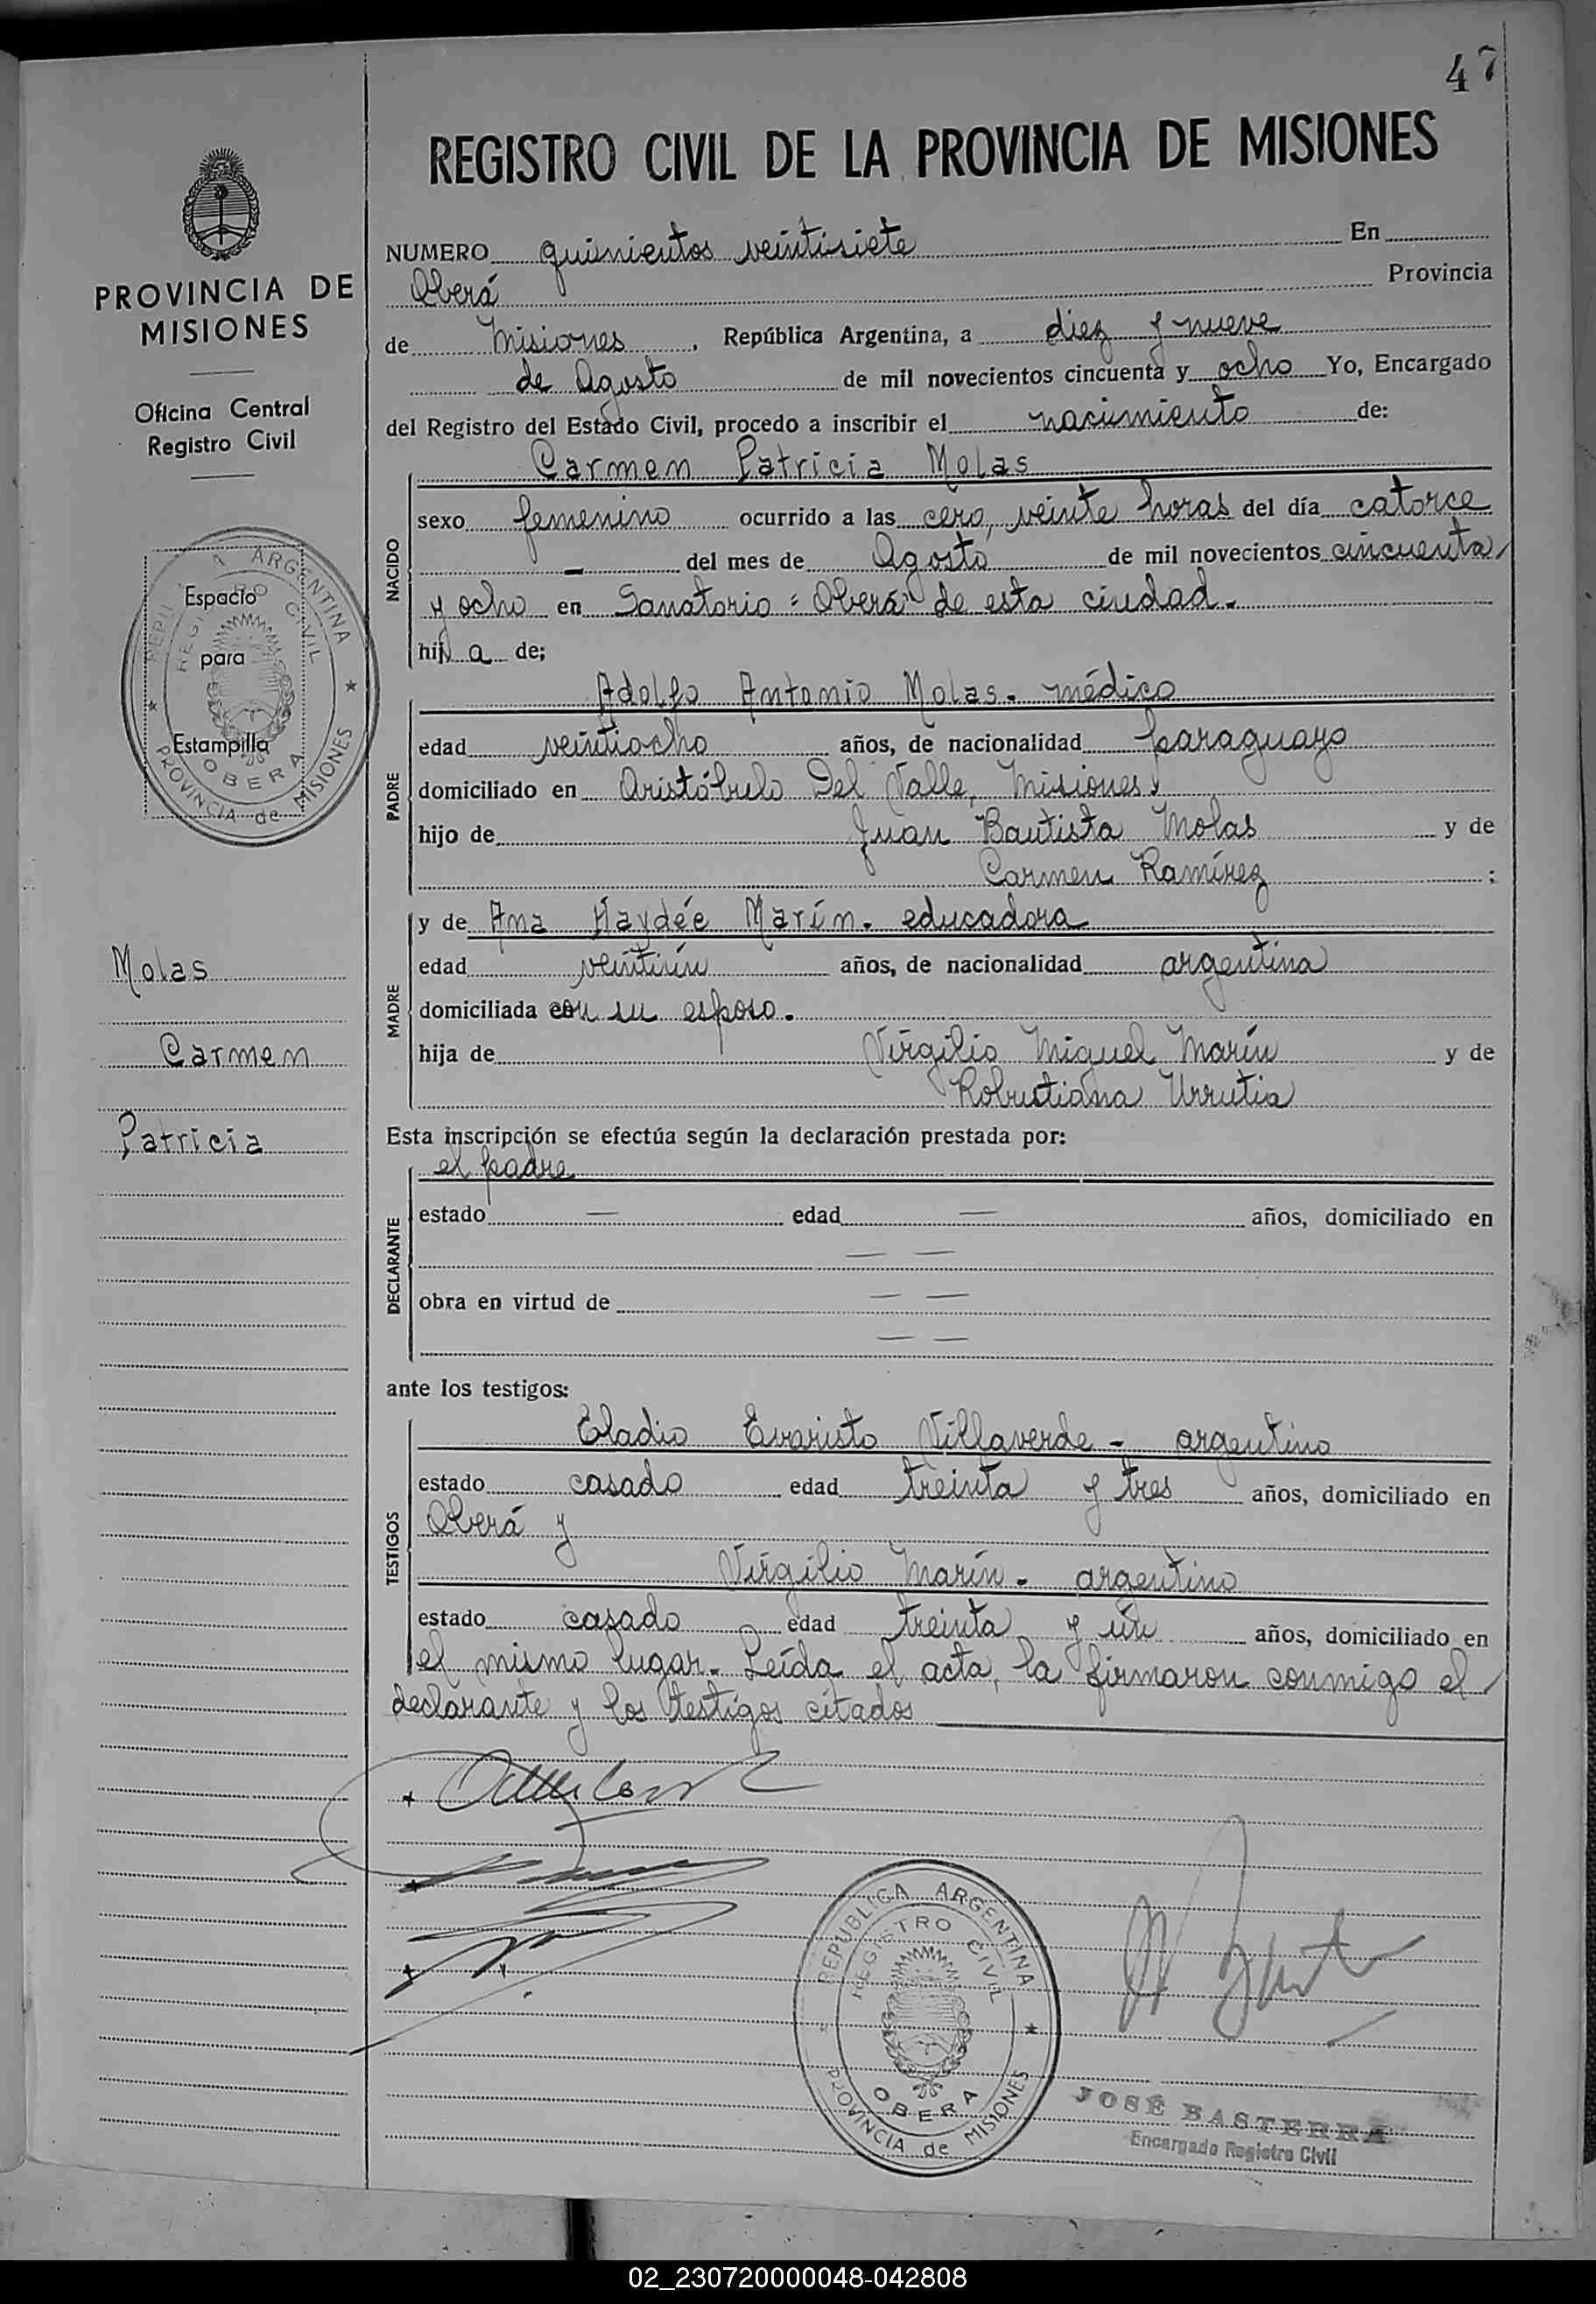 47
REGISTRO CIVIL DE LA PROVINCIA DE MISIONES
PROVINCIA DE
MISIONES
Oficina Central
Registro Civil
REPUBLICA ARGENTINA
REGISTRO CIVIL
Espacio
para
Estampilla
OBERA
PROVINCIA de MISIONES
Molas
Carmen
Patricia
NUMERO quinientos veintisiete En
Oberá Provincia
de Misiones, República Argentina, a diez y nueve
de Agosto de mil novecientos cincuenta y ocho Yo, Encargado
del Registro del Estado Civil, procedo a inscribir el nacimiento de:
Carmen Patricia Molas
NACIDO
sexo femenino ocurrido a las cero, veinte horas del día catorce
— del mes de Agosto de mil novecientos cincuenta
y ocho en Sanatorio "Oberá" de esta ciudad.
hij a de;
Adolfo Antonio Molas. médico
PADRE
edad veintiocho años, de nacionalidad paraguayo
domiciliado en Aristóbulo Del Valle, Misiones,
hijo de Juan Bautista Molas y de
Carmen Ramírez ;
y de Ana Haydée Marín. educadora
MADRE
edad veintiún años, de nacionalidad argentina
domiciliada con su esposo.
hija de Virgilio Miguel Marín y de
Robustiana Urrutia
Esta inscripción se efectúa según la declaración prestada por:
el padre
DECLARANTE
estado — edad — años, domiciliado en
— —
obra en virtud de — —
— —
ante los testigos:
Eladio Evaristo Villaverde - argentino
TESTIGOS
estado casado edad treinta y tres años, domiciliado en
Oberá y
Virgilio Marín. argentino
estado casado edad treinta y un años, domiciliado en
el mismo lugar. Leída el acta, la firmaron conmigo el
declarante y los testigos citados
REPUBLICA ARGENTINA
REGISTRO CIVIL
OBERA
PROVINCIA de MISIONES
JOSÉ BASTERRA
Encargado Registro Civil
02_230720000048-042808